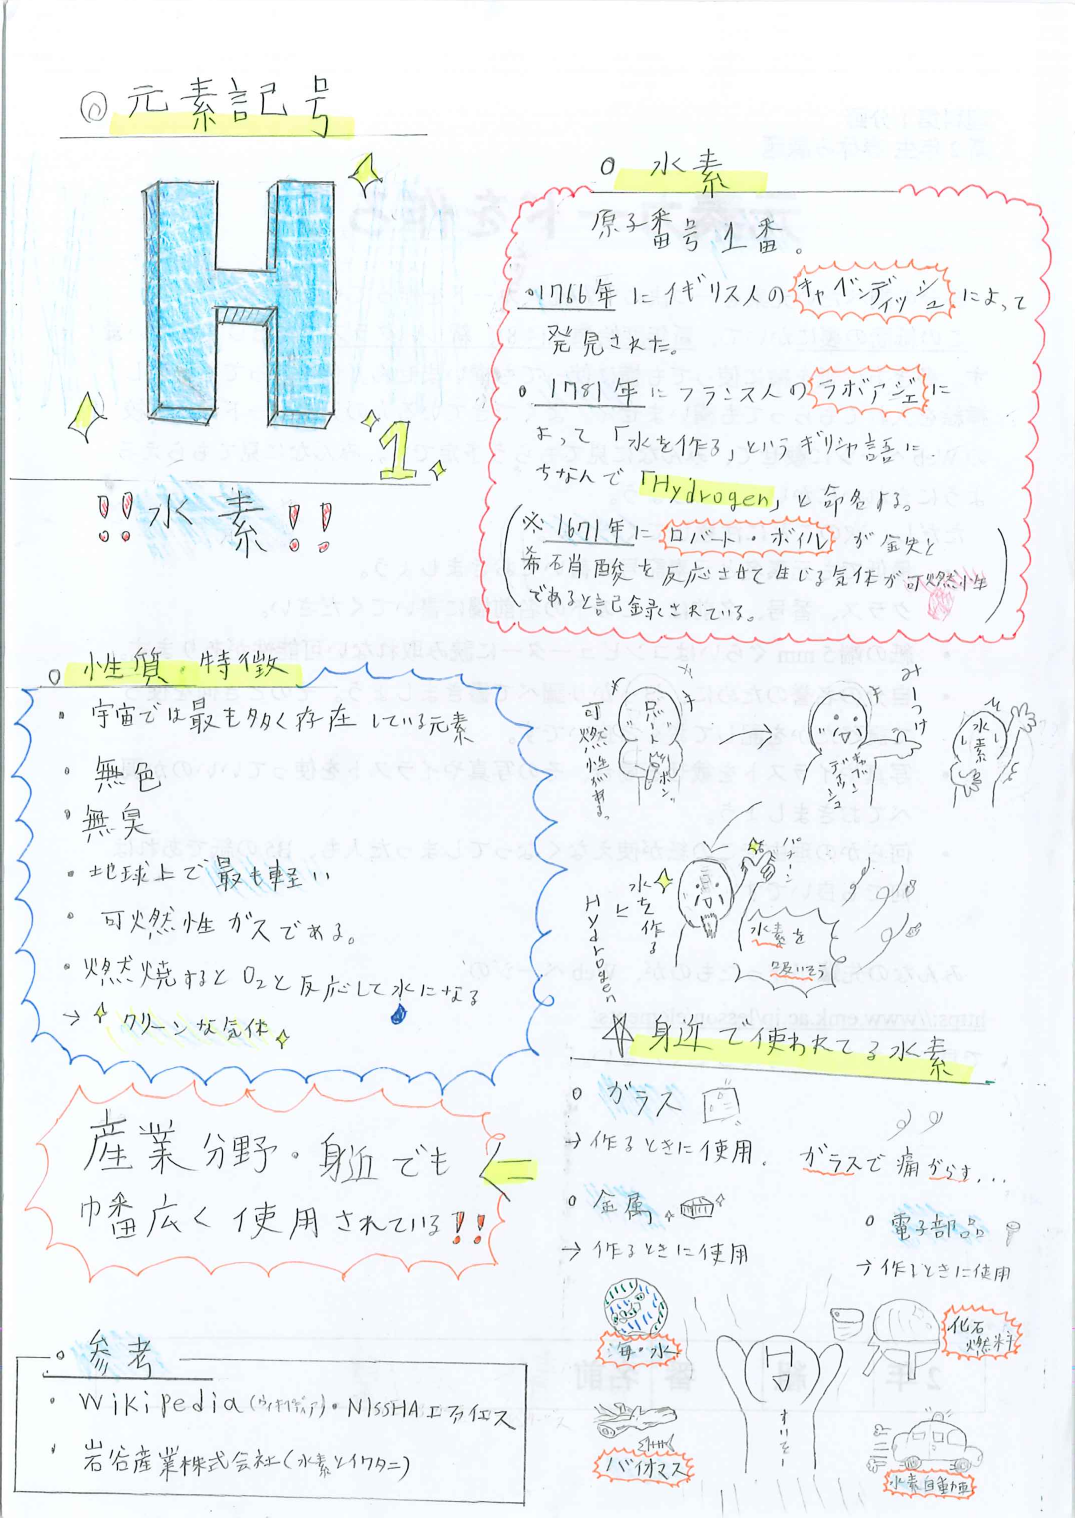 ◎元素記号
H
1
!!水素!!
○ 水素
原子番号1番。
○1766年にイギリス人のキャベンディッシュによって
発見された。
○1781年にフランス人のラボアジェに
よって「水を作る」というギリシャ語に
ちなんで「Hydrogen」と命名する。
(※1671年にロバート・ボイルが鉄と
希硝酸を反応させて生じる気体が可燃性
であると記録されている。)
○ 性質・特徴
・宇宙では最も多く存在している元素
・無色
・無臭
・地球上で最も軽い
・可燃性ガスである。
・燃焼するとO₂と反応して水になる
→クリーンな気体
産業分野・身近でも
幅広く使用されている!!
可燃性がある。
ロバート
みーつけ
水素
水を作る
Hydrogen
水素を
吸いそう
身近で使われてる水素
○ ガラス
→作るときに使用.
ガラスで痛がらす...
○ 金属
→作るときに使用
○ 電子部品
→作るときに使用
海・水
化石
燃料
H
すいそー
バイオマス
水素自動車
○参考
・Wikipedia(ウィキペディア)・NISSHAエフアイエス
・岩谷産業株式会社(水素とイワタニ)